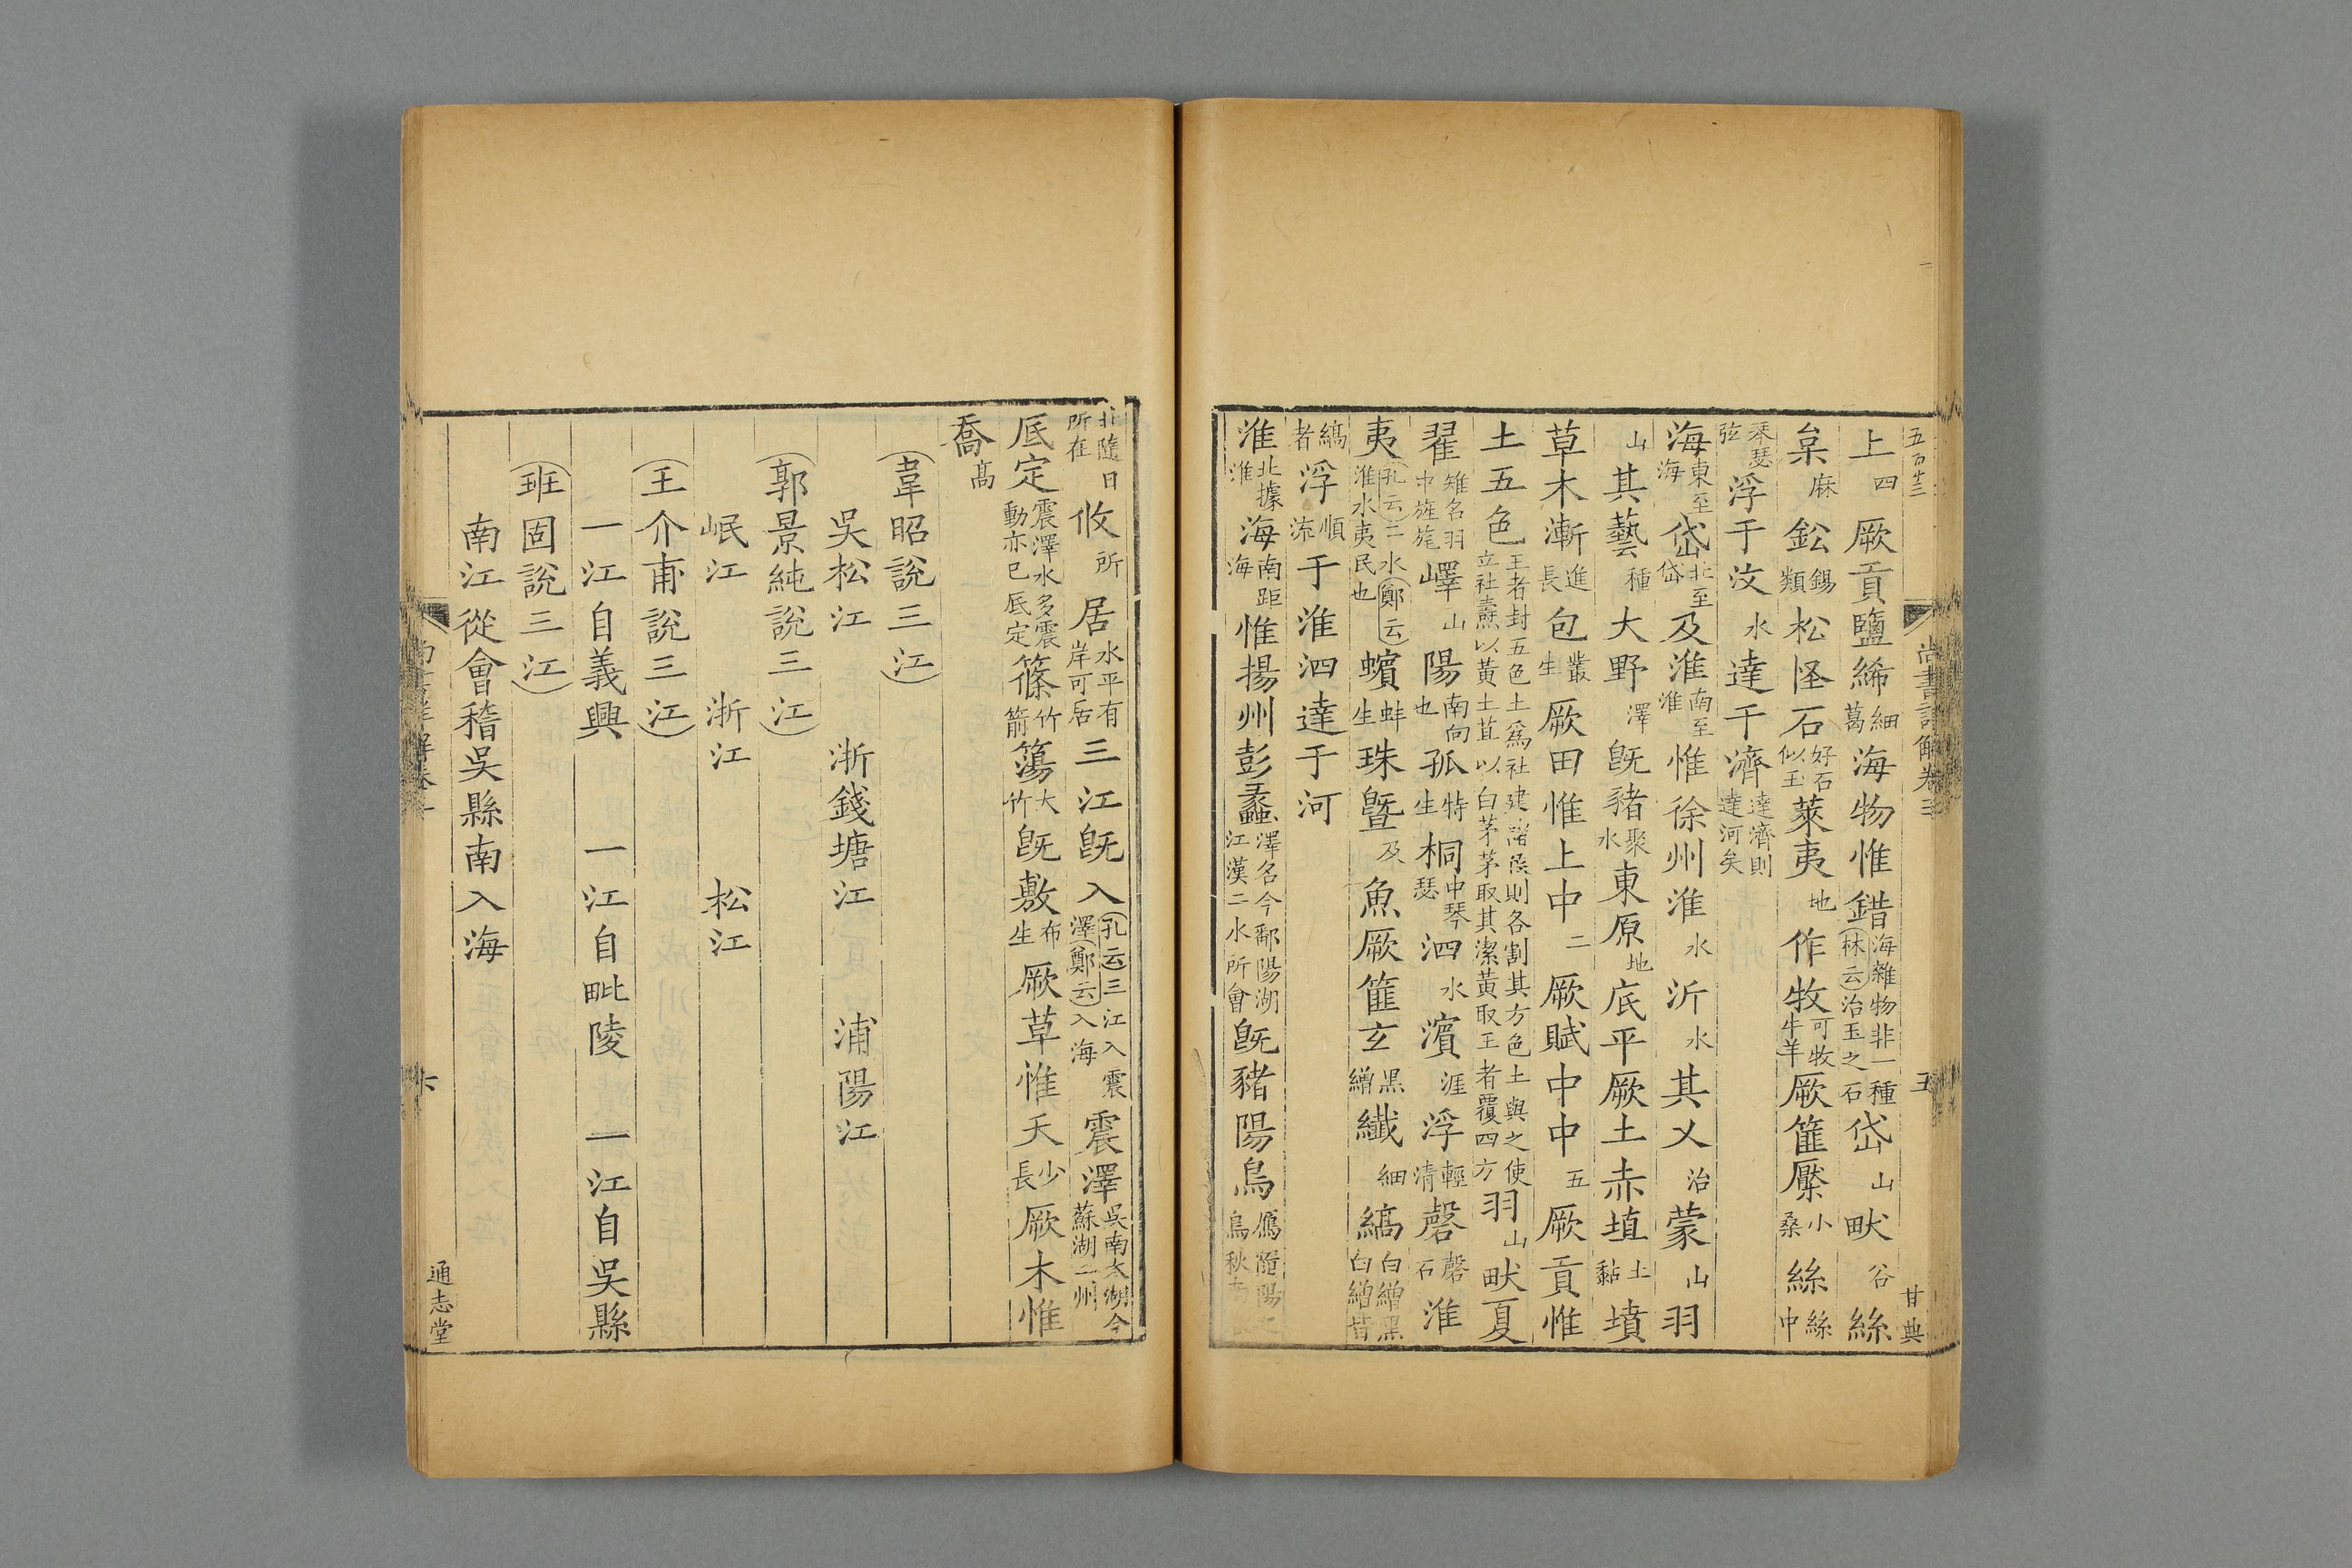 五百廿三
尚書詳解卷三 五
甘典
上四厥貢鹽絺細葛海物惟錯海雜物非一種林云治玉之石岱山畎谷絲
枲麻鈆錫類松怪石好石似玉萊夷地作牧可牧牛羊厥篚檿小桑絲絲中
琴瑟弦浮于汶水達于濟達濟則達河矣
海東至海岱北至岱及淮南至淮惟徐州淮水沂水其乂治蒙山羽
山其藝種大野澤旣豬聚水東原地厎平厥土赤埴土黏墳
草木漸進長包叢生厥田惟上中二厥賦中中五厥貢惟
土五色王者封五色土爲社建諸侯則各割其方色土與之使立社燾以黃土苴以白茅茅取其潔黃取王者覆四方羽山畎夏
翟雉名羽中旌旄嶧山陽南向也孤特生桐中琴瑟泗水濱涯浮輕清磬磬石淮
夷孔云二水鄭云淮水夷民也蠙蚌生珠曁及魚厥篚玄黑繒纖細縞白繒黑白繒皆
縞者浮順流于淮泗達于河
淮北據淮海南距海惟揚州彭蠡澤名今鄱陽湖江漢二水所會旣豬陽鳥鴈隨陽之鳥秋
北隨日所在攸所居水平有岸可居三江旣入孔云三江入震澤鄭云入海震澤吳南太湖今蘇湖二州
厎定震澤水多震動亦已厎定篠竹箭簜大竹旣敷布生厥草惟夭少長厥木惟
喬高
韋昭說三江
吳松江 浙錢塘江 浦陽江
郭景純說三江
岷江 浙江 松江
王介甫說三江
一江自義興 一江自毗陵 一江自吳縣
班固說三江
南江從會稽吳縣南入海
六
通志堂